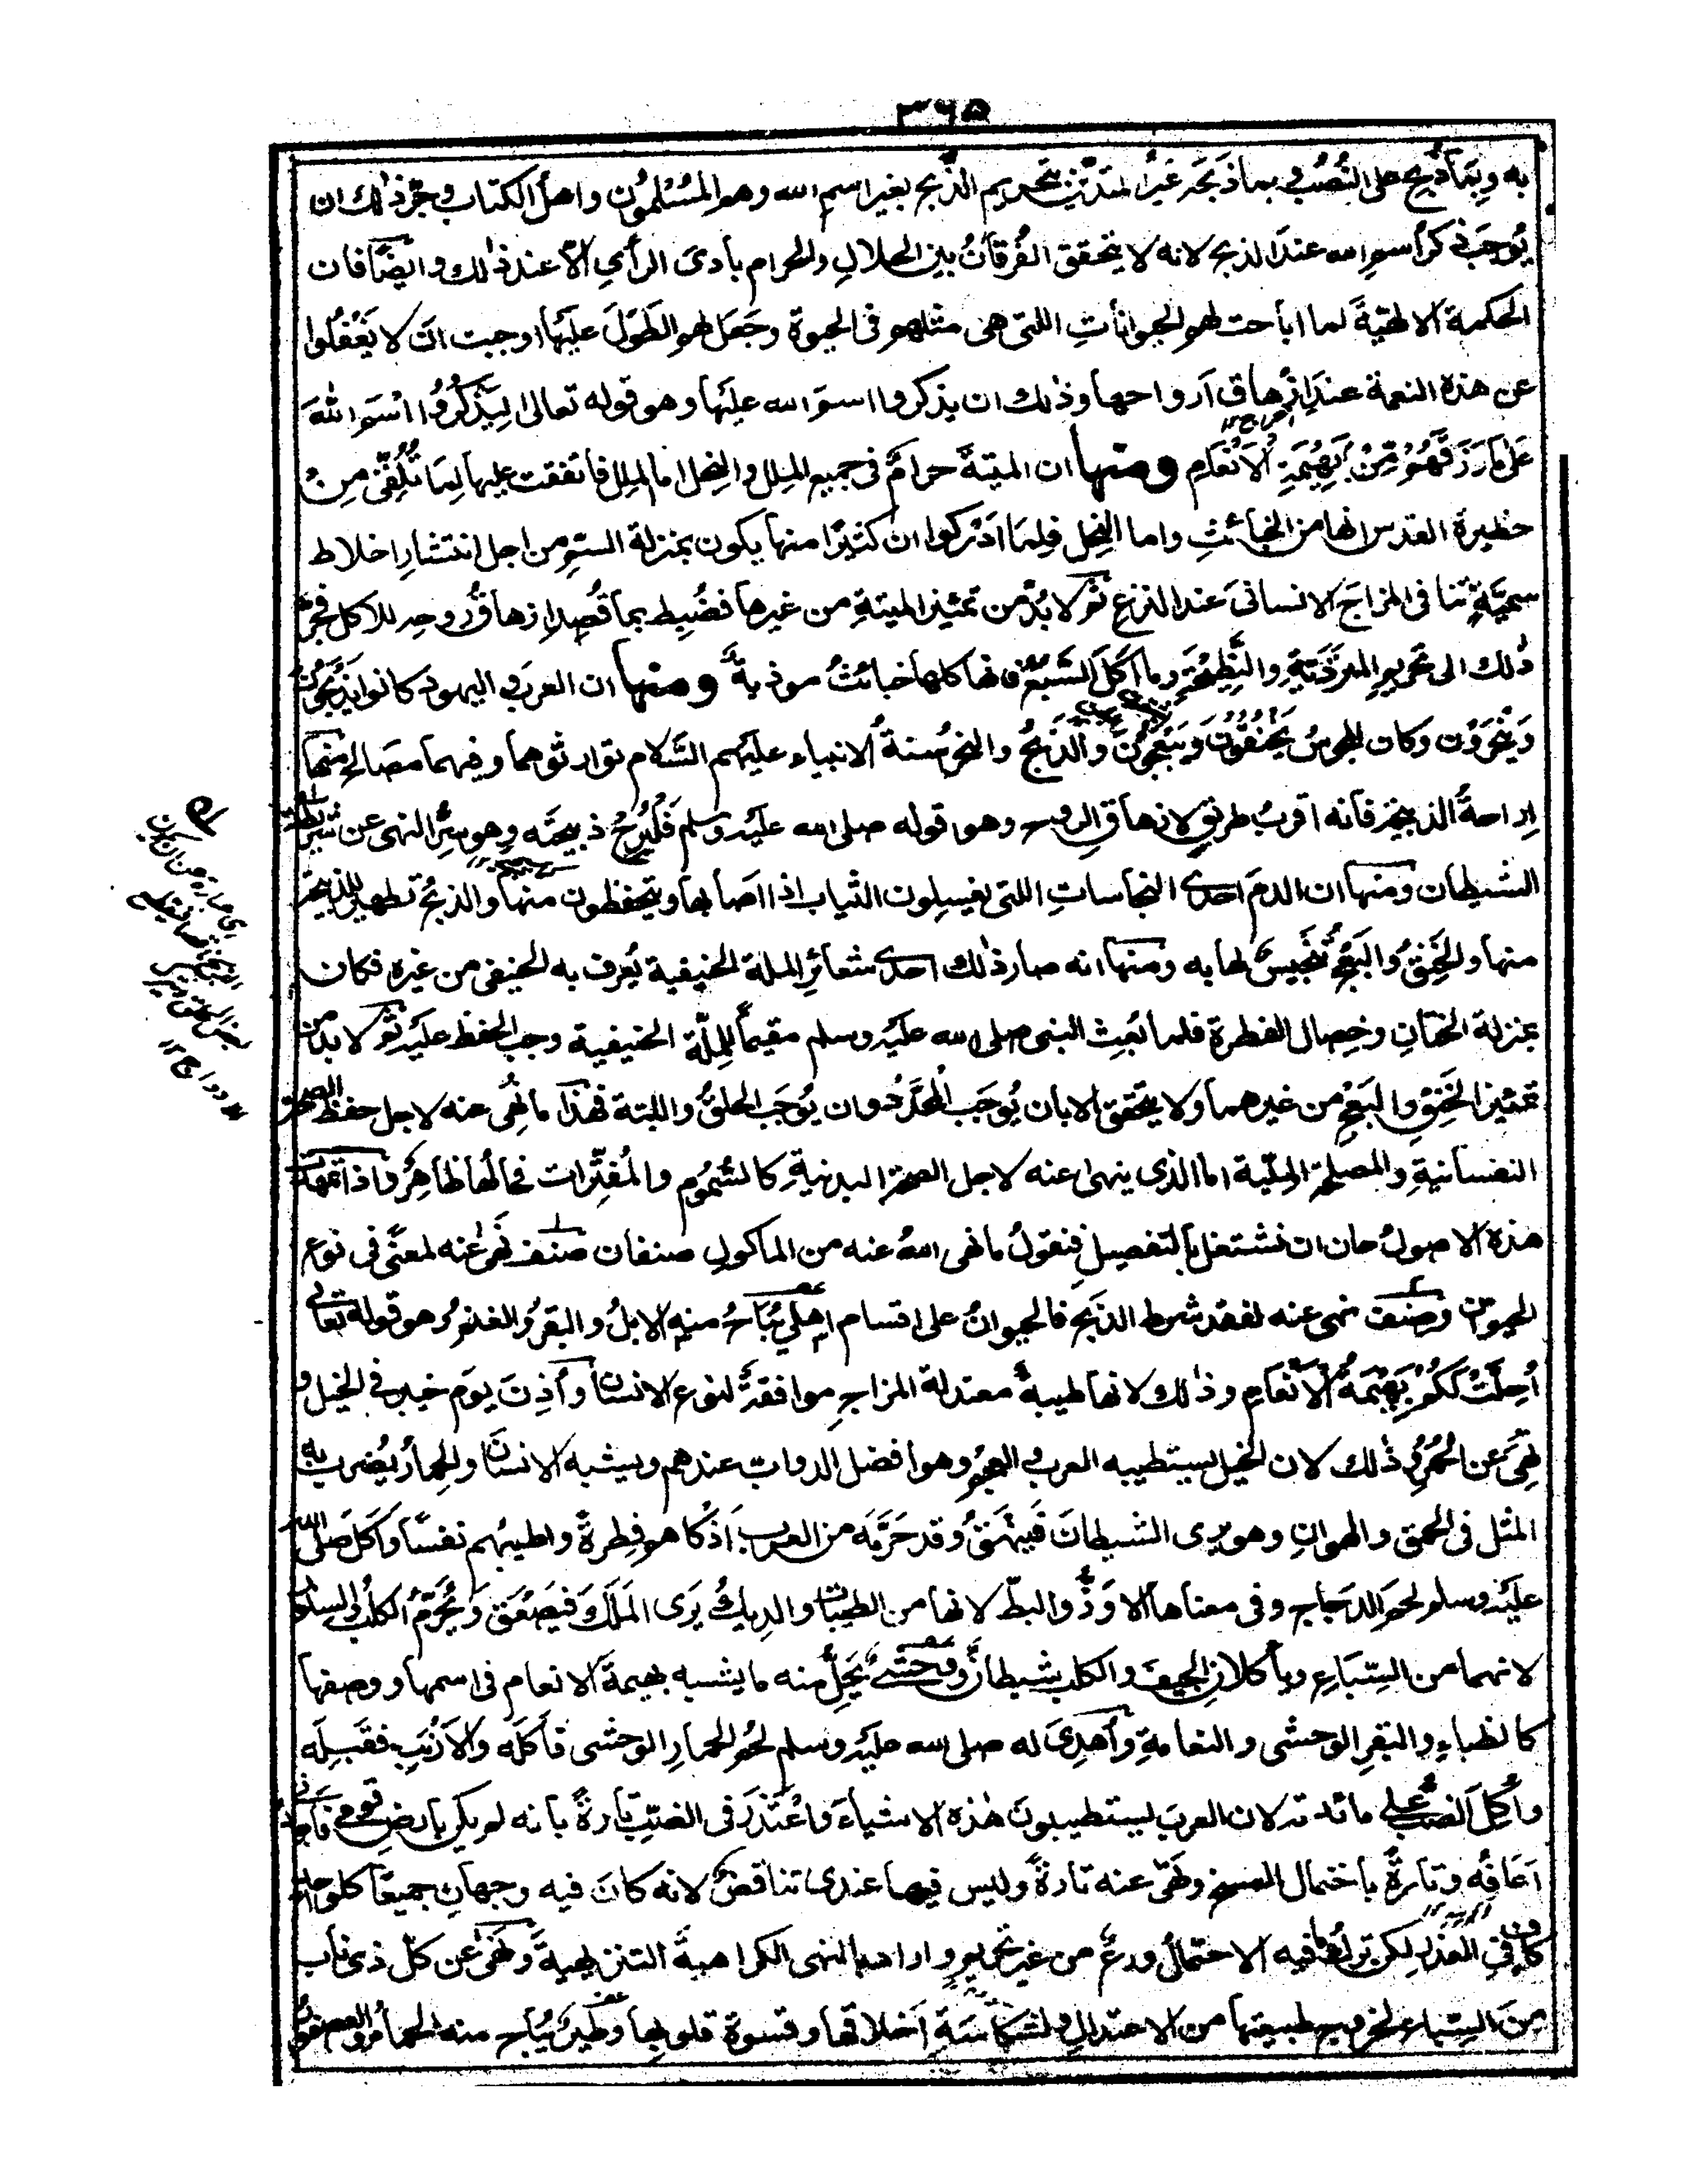 ٣٦٥
به وبما ذبح على النُّصُب وبما ذبحه غيرُ المتديّن بتحريم الذبح بغير اسم الله وهم المُسْلمُون واهل الكتاب وجرّ ذلك ان
يُوجَب ذكر اسم الله عند الذبح لانه لا يتحقق الفُرقانُ بين الحلالِ والحرام بادى الرأي الّا عند ذلك وايضًا فان
الحكمة الالهيّة لما اباحت لهم الحيواناتِ اللتى هى مثلهم فى الحيوة وجَعَل لهم الطَّولَ عليها اوجبت ان لا يَغْفُلوا
عن هذه النعمة عند اِزهاق اَرواحها وذلك ان يذكروا اسم الله عليها وهو قوله تعالى لِيَذْكُرُوا اسْمَ اللهَ
عَلى مَا رَزَقَهُمْ مِّنْ بَهِيْمَةِ الْاَنْعَامِ ومنها ان الميتةَ حرامٌ فى جميع المِلل والنِحل اما الملل فاتفقت عليها لِمَا تُلُقّى مِنْ
حظيرة القدس انها من الخبائثِ واما النِحل فلِمَا اَدْرَكوا ان كثيرًا منها يكون بمنزلة السمّ من اجل انتشارِ اخلاط
سمّيّةٍ تنافى المزاجَ الانسانىَ عند النزع ثم لا بُدّ من تمييز الميتةِ من غيرها فضُبِط بما قُصِد ازهاقُ روحه للاكل فجرّ
ذلك الى تحريم المتردّيةِ والنَّطِيْحَةِ وما اَكَلَ السَّبُعُ فانها كلها خبائثُ موذيةٌ ومنها ان العرب واليهود كانوا يَذْبَحُوْنَ
وَيَنْحَرُوْن وكان المجوسُ يَخْنُقُوْنَ وَيَبْعَجُوْنَ والذَّبْحُ والنحرُ سنةُ الانبياء عليهم السَّلام توارثوهما وفيهما مصالح منها
اِراحةُ الذبيحة فانه اقربُ طريقٍ لازهاق الروح وهو قوله صلى الله عليه وسلم فَلْيُرِحْ ذبيحتَه وهو سِرُّ النهى عن شريطة
الشيطان ومنها ان الدمَ احدى النجاساتِ اللتى يغسِلون الثياب اذا اصابها ويتحفظون منها والذبحُ تطهير للذبيحة
منها والخَنِقُ والبَعْجُ تنْجِيسٌ لها به ومنها انه صار ذلك احدى شعائرِ الملة الحنيفية يُعرف به الحنيفى من غيره فكان
بمنزلة الختانِ وخِصال الفطرة فلما بُعِث النبى صلى الله عليه وسلم مقيماً للملّة الحنيفية وجب الحفظ عليه ثم لا بد من
تمييز الخَنِقِ والبَعْجِ من غيرهما ولا يتحقق الا بان يُوجَب المُحَدَّدُ وان يُوجَب الحلقُ واللبّة فهذا ما نُهِى عنه لاجل حفظ الصحة
النفسانيةِ والمصلحة المليّة اما الذى ينهى عنه لاجل الصحة البدنيةِ كالسُّمُوم والمُفتِّرات فحالُها ظاهِرٌ واذا تمهّدت
هذه الاصولُ حان ان نشتغل بالتفصيلِ فنقولُ ما نهى اللهُ عنه من الماكولِ صنفان صنف نَهىٰ عنه لمعنًى فى نوع
الحيوان وصنف نهى عنه لفقد شرط الذبح فالحيوانُ على اقسام اهلىٌ يُبَاحُ منه الابلُ والبقرُ والغنمُ وهو قوله تعالى
اُحِلَّتْ لَكُمْ بَهِيْمَةُ الْاَنْعَامِ وذلك لانها طيبةٌ معتدلة المزاجِ موافقةٌ لنوع الانسان واُذِنَ يومَ خيبر فى الخيل و
نُهِىَ عن الحُمُرِ وذلك لان الخيل يستطيبه العرب والعجم وهو افضل الدواب عندهم ويشبه الانسانَ والحمارُ يُضرب به
المثل فى الحمق والهوانِ وهو يرى الشيطانَ فَيَنْهَقُ وقد حَرَّمَه من العرب اَذْكاهم فِطرةً واطيبُهم نفسًا واَكَل صَلّى الله
عليه وسلم لحم الدجاج وفى معناها الاوَزُّ والبطّ لانها من الطيّبات والديك يَرَى المَلَكَ فيَصْعَقُ وَيُحَرَّمُ الكلبُ والسنّور
لانهما من السِّبَاعِ وياكلان الجيفَ والكلب شيطانٌ ووحشىٌّ يَحِلُّ منه ما يشبه بهيمةَ الانعام فى اسمها ووصفها
كالظباءِ والبقرِ الوحشى والنعامةِ واُهدِىَ له صلى الله عليه وسلم لحمُ الحمارِ الوحشى فاَكَلَه والاَرْنَبِ فقَبِلَه
واُكِلَ الضبُّ على مائدته لان العربَ يستطيبون هٰذه الاشياءَ واعْتَذَرَ فى الضبّ تارةً بانه لم يكن بارض قومى فاَجِدُنى
اَعَافُه وتارةً باحتمال المسخ ونَهىٰ عنه تارةً وليس فيها عندى تناقضٌ لانه كانَ فيه وجهانِ جميعًا كلُّ واحد
كافٍ فى العذرِ لكن تركُ ما فيه الاحتمالُ ورعٌ من غير تحريمٍ واراد بالنهى الكراهيةَ التنزيهيةَ ونَهىٰ عن كلّ ذى نابٍ
مِنَ السِّباع لخروج طبيعتها من الاعتدالِ ولشَكاسَةِ اَخلاقها وقسوة قلوبها وطيرٌ يُبَاح منه الحمامُ والعصفورُ